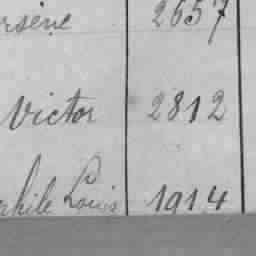 rsène 2657
Victor 2812
Louis 1914